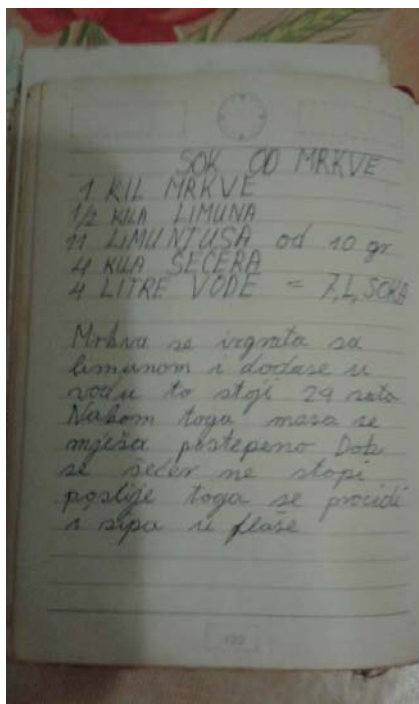 SOK OD MRKVE
1 KIL MRKVE
1/2 KILA LIMUNA
11 LIMUNTUSA od 10 gr
4 KILA ŠEĆERA
4 LITRE VODE = 7,L, SOKA
Mrkva se izgrata sa
limunom i dodase u
vodu to stoji 24 sata
Nakom toga masa se
mješa postepeno Dok
se sečer ne stopi
poslije toga se procidi
i sipa u flaše